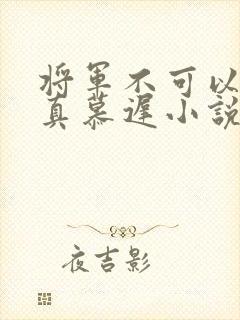 将軍不可以
真慕遲小說
夜吉影